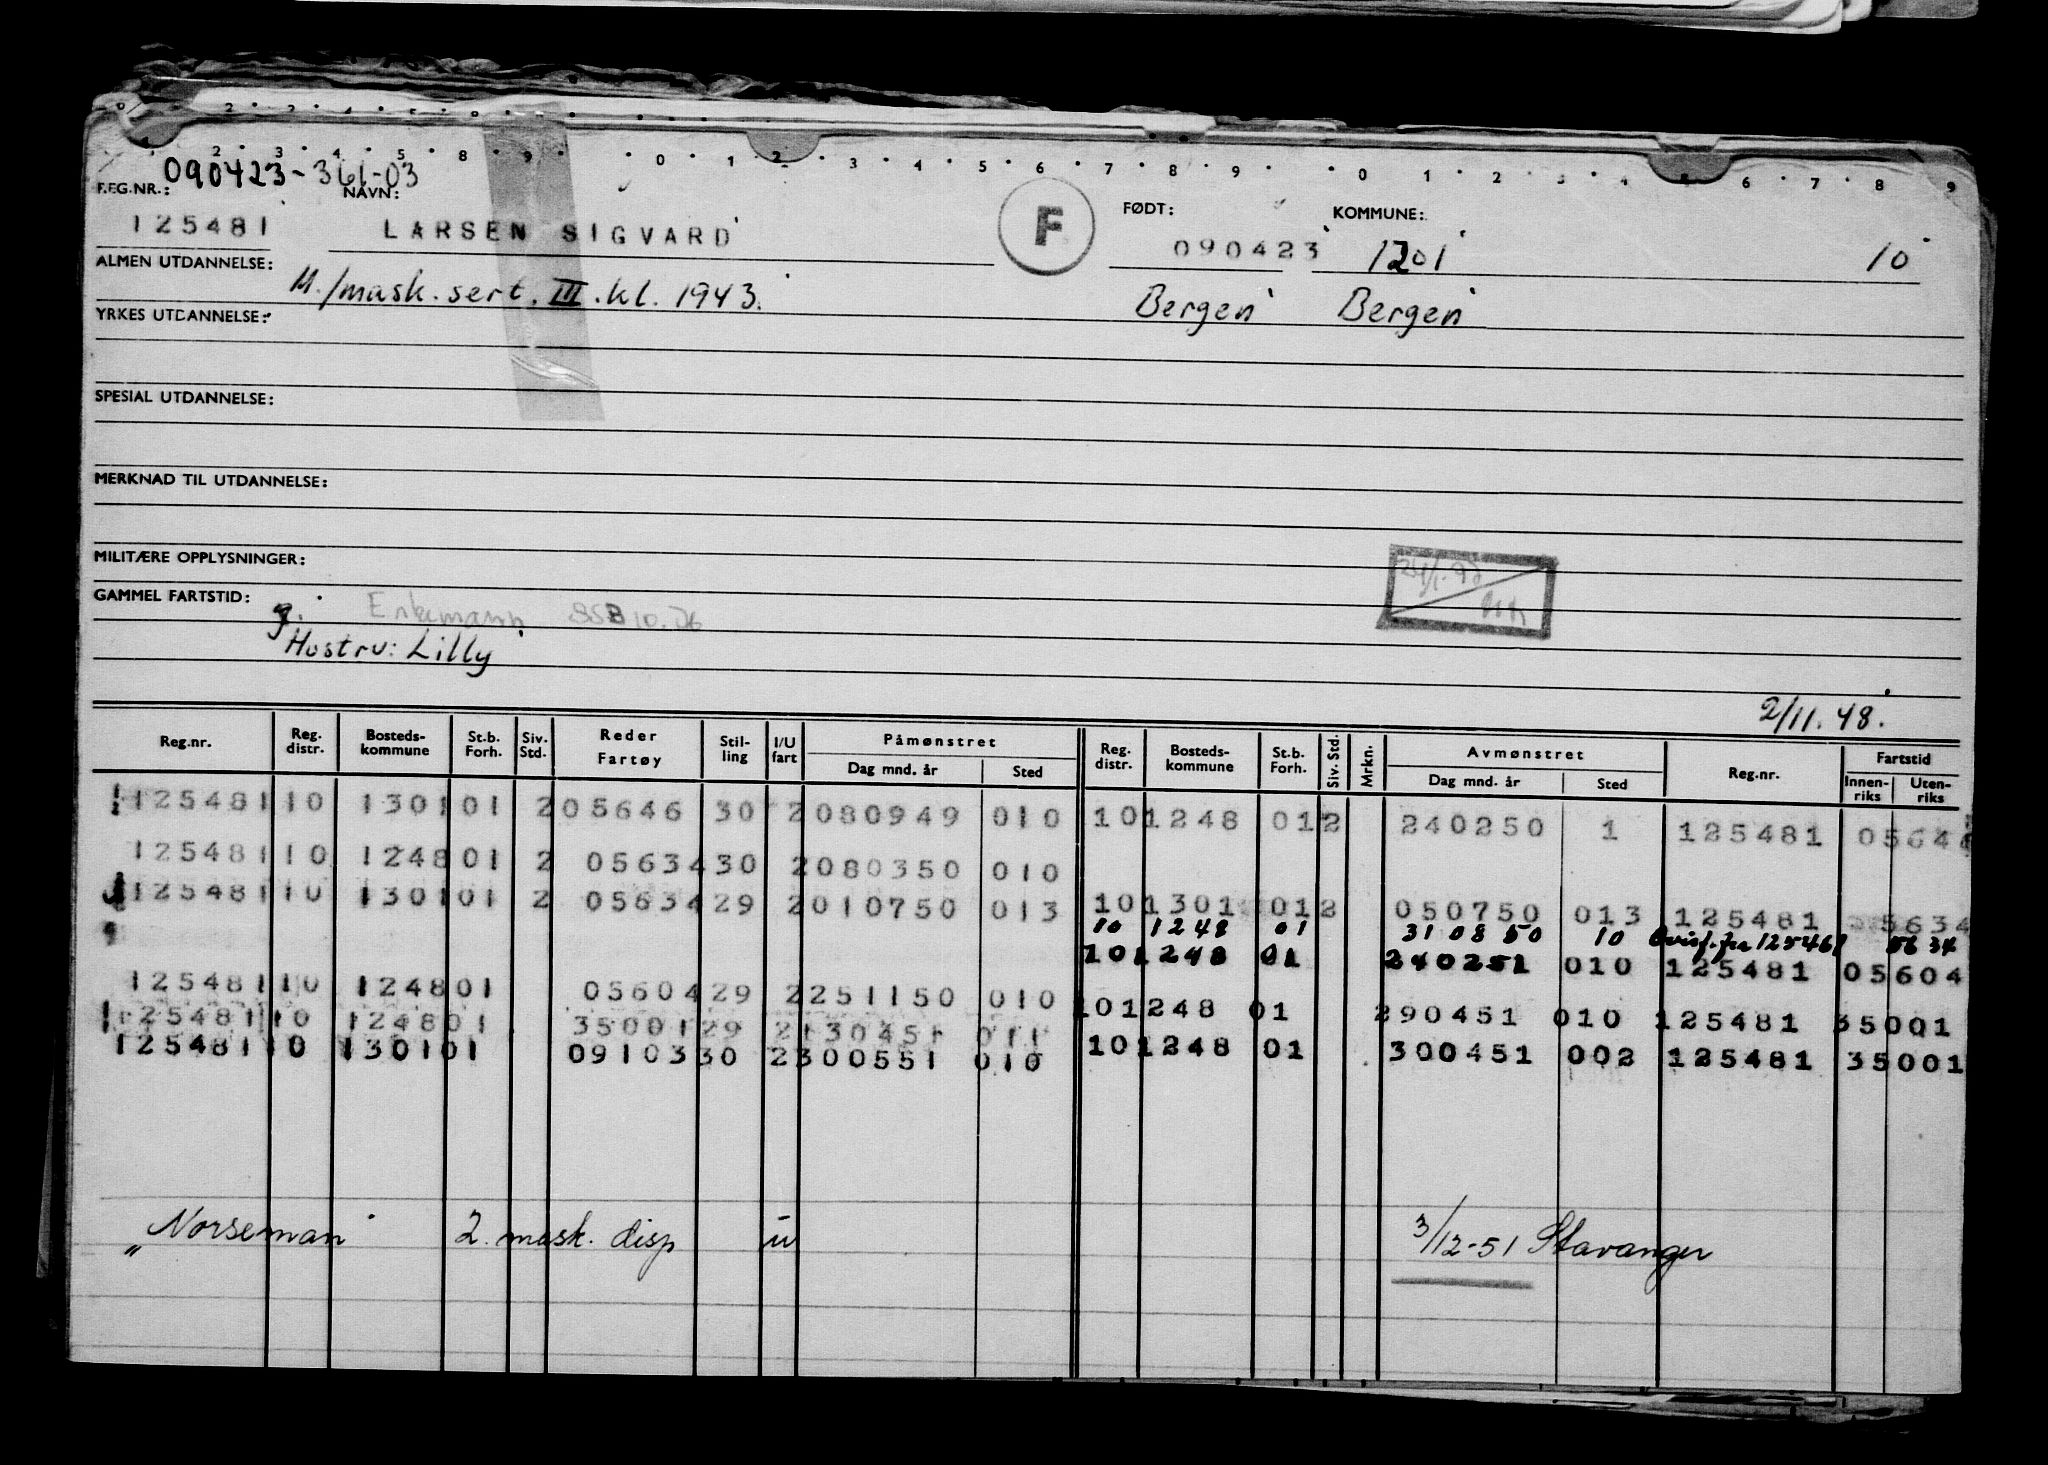 090423-361-03
F.EG.NR.: NAVN: FØDT: KOMMUNE:
125481 LARSEN SIGVARD F 090423 1201 10
ALMEN UTDANNELSE: M./mask.sert. III.kl. 1943. Bergen Bergen
YRKES UTDANNELSE:
SPESIAL UTDANNELSE:
MERKNAD TIL UTDANNELSE:
MILITÆRE OPPLYSNINGER:
GAMMEL FARTSTID: g.
Hustru: Lilly
2/11.48.
Reg.nr. Reg. distr. Bosteds- kommune St.b. Forh. Siv. Std. Reder Fartøy Stil- ling I/U fart Påmønstret Dag mnd. år Sted Reg. distr. Bosteds- kommune St.b. Forh. Siv. Std. Mrkn. Avmønstret Dag mnd. år Sted Reg.nr. Fartstid Innen- riks Uten- riks
125481 10 1301 01 2 05646 30 2 080949 010 10 1248 01 2 240250 1 125481 0564
125481 10 1248 01 2 05634 30 2 080350 010
125481 10 1301 01 2 05634 29 2 010750 013 10 1301 01 2 050750 013 125481 5634
10 1248 01 310850 10 5634
10 1248 01 240251 010 125481 05604
125481 10 1248 01 05604 29 2 251150 010 10 1248 01 290451 010 125481 35001
125481 10 1248 01 35001 29 2 130451 011
125481 10 1301 01 09103 30 2 300551 010 10 1248 01 300451 002 125481 35001
"Norseman" 2. mask. disp u 3/12-51 Stavanger